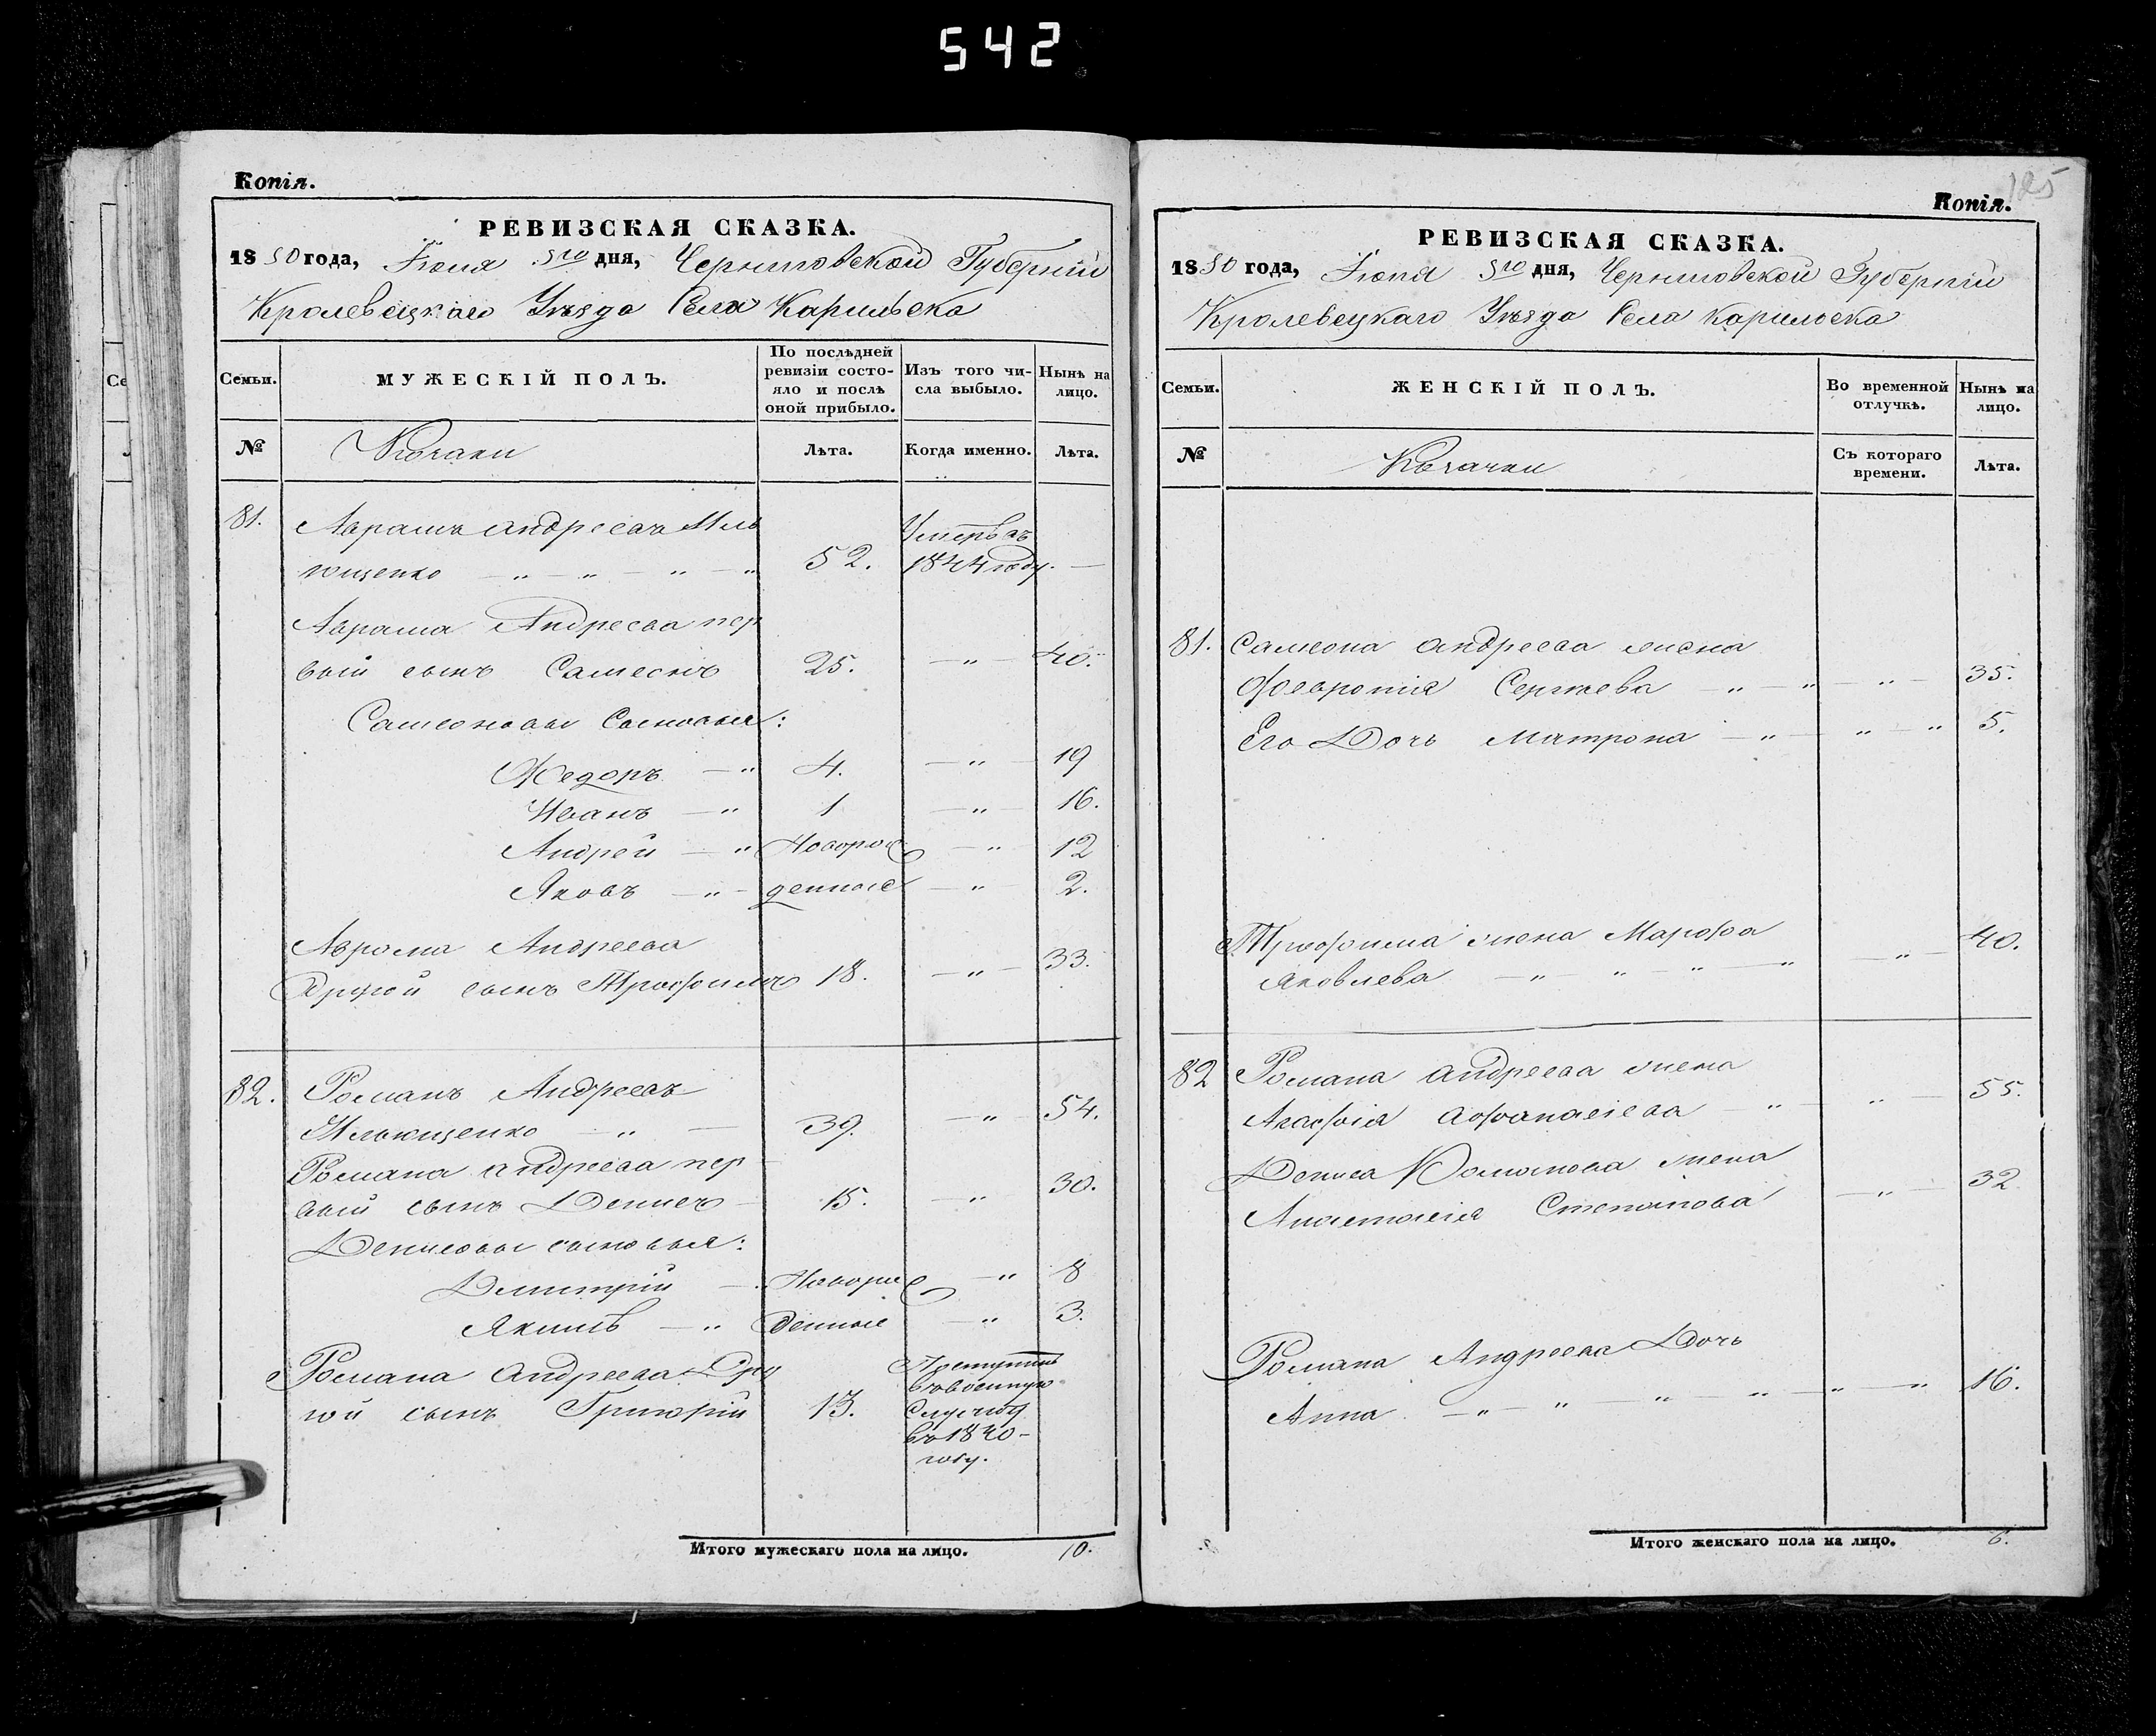 542
Копія.
РЕВИЗСКАЯ СКАЗКА.
1850 года, Іюня 5го дня, Черниговской Губерніи
Кролевецкаго Уѣзда Села Карильска
Семьи.
МУЖЕСКІЙ ПОЛЪ.
По послѣдней ревизіи состояло и послѣ оной прибыло.
Изъ того числа выбыло.
Нынѣ на лицо.
№
Козаки
Лѣта.
Когда именно.
Лѣта.
81. Аврамъ Андреевъ Иль Умеръ въ
ющенко — " — " — " — " 52. 1844 году. —
Аврама Андреева пер
вый сынъ Самеонъ 25. — " — 40.
Самеоновы Сыновья:
Федоръ — " 4. — " — 19
Иванъ — " 1 — " — 16.
Андрей — " Новорож — " — 12
Яковъ — " — денные — " — 2.
Аврама Андреева
другой сынъ Трофимъ 18. — " — 33.
82. Романъ Андреевъ
Ильющенко — " — 39. — " — 54.
Романа Андреева пер
вый сынъ Денисъ — 15. — " — 30.
Денисовы сыновья:
Дмитрій — Новорож — " 8
Якимъ — " денные " 3.
Романа Андреева Дру Поступилъ
гой сынъ Григорій 13. въ военную
Службу
въ 1840-
году.
Итого мужескаго пола на лицо. 10.
125
Копія.
РЕВИЗСКАЯ СКАЗКА.
1850 года, Іюня 5го дня, Черниговской Губерніи
Кролевецкаго Уѣзда Села Карильска
Семьи.
ЖЕНСКІЙ ПОЛЪ.
Во временной отлучкѣ.
Нынѣ на лицо.
№
Козачки
Съ котораго времени.
Лѣта.
81. Самеона Андреева жена
Февронія Сергеева — " — " — " — 35.
Его Дочь Матрона — " — " — " 5.
Трофима жена Марфа
Яковлева — " " " — " — " — 40.
82 Романа Андреева жена
Агафія Афанасіева — " — " — 55.
Дениса Романова жена
Анастасія Степанова — " — 32
Романа Андреева Дочь
Анна — " — " — " — " — " — " — 16.
Итого женскаго пола на лицо. 6.